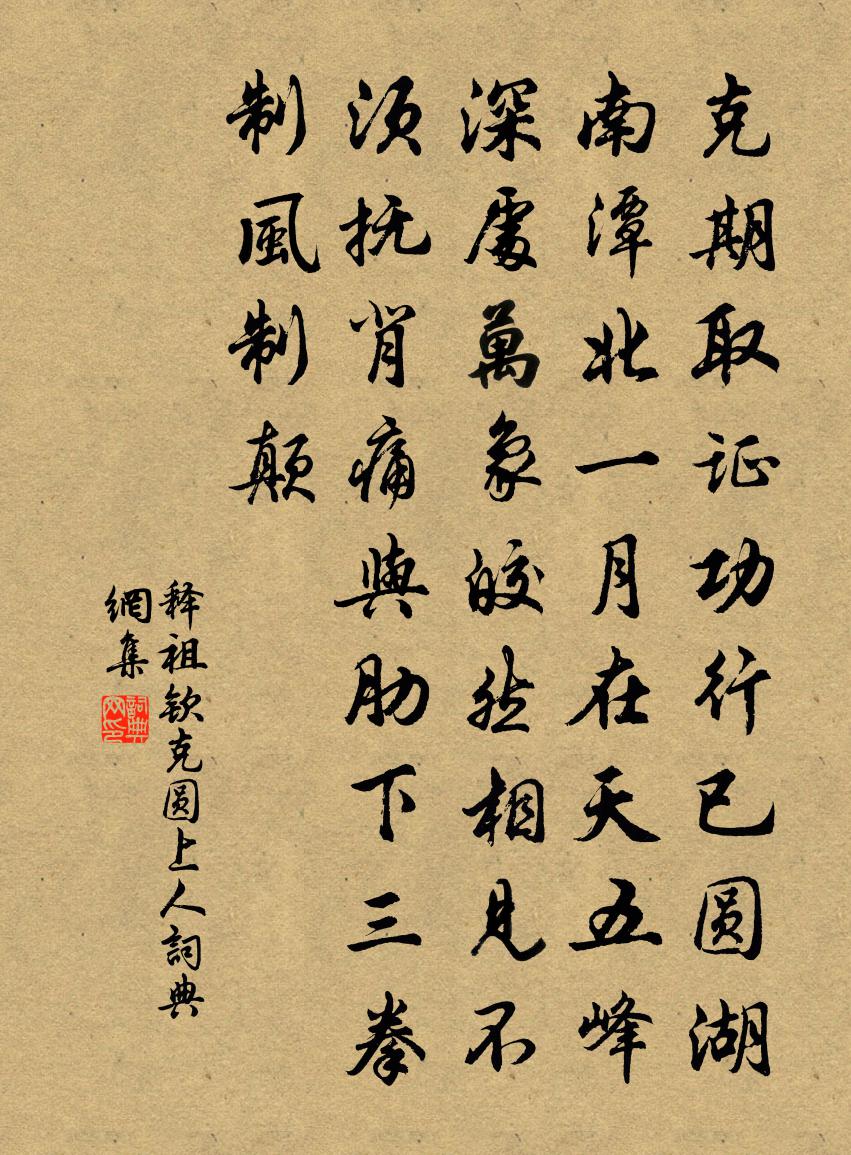 克期取证功行已圆湖
南潭北一月在天五峰
深處萬象皎然相見不
须抚背痛與肋下三拳
制風制颠
释祖钦克圆上人詞典
網集
詞典网印